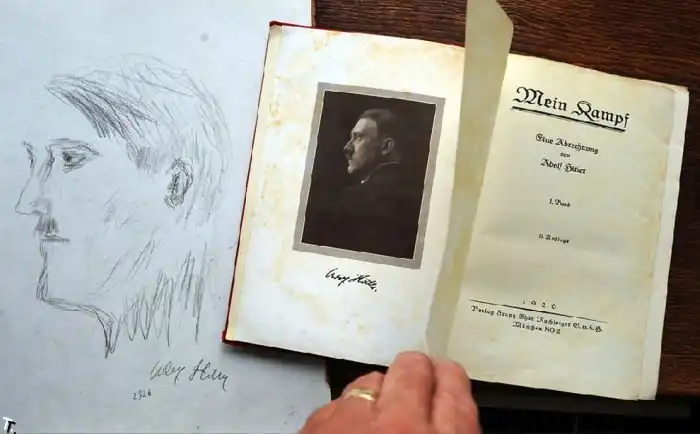 Adolf Hitler
1926
T.
Adolf Hitler.
Mein Kampf
Eine Abrechnung
von
Adolf Hitler
I. Band
Auflage
1926
Verlag Franz Eher Nachfolger G.m.b.H.
München NO 2